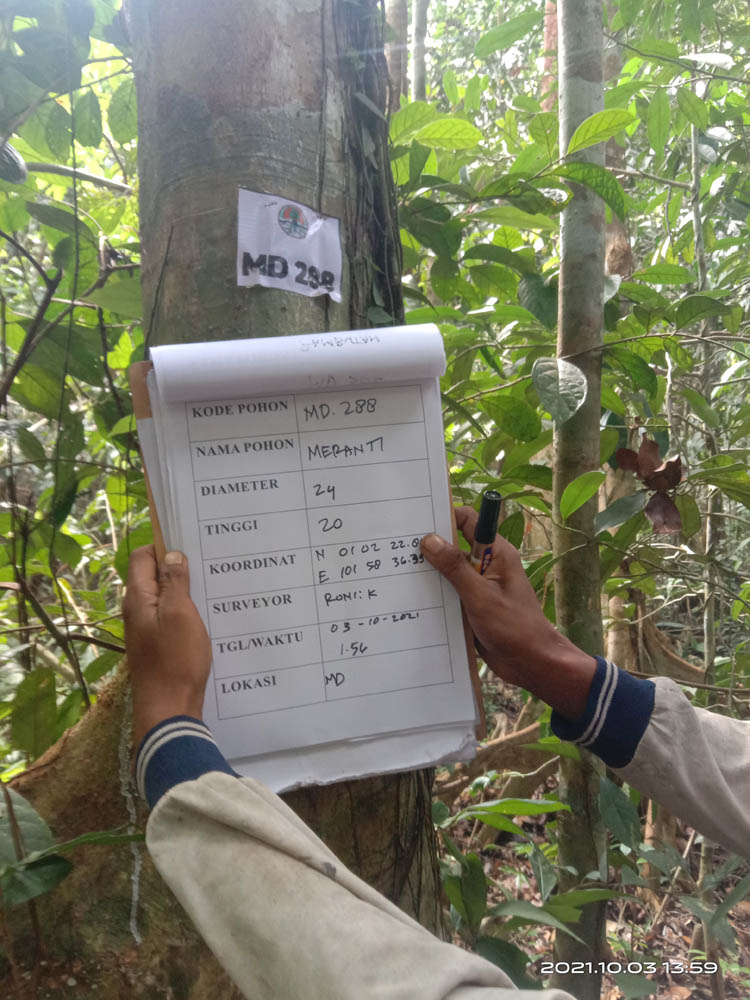 MD 288
KODE POHON MD. 288
NAMA POHON MERANTI
DIAMETER 24
TINGGI 20
KOORDINAT N 01 02 22.
E 101 58 36.
SURVEYOR RONI: K
TGL/WAKTU 03-10-2021
1.56
LOKASI MD
2021.10.03 13:59